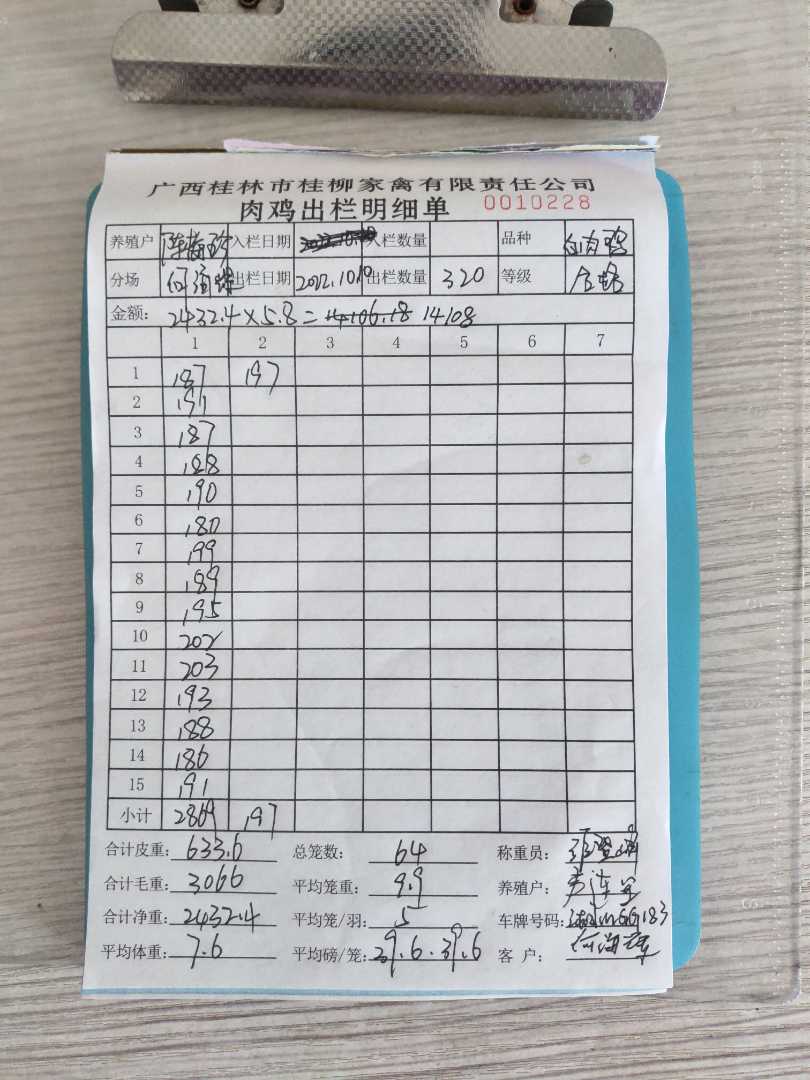 广西桂林市桂柳家禽有限责任公司
肉鸡出栏明细单 0010228
养殖户 入栏日期 入栏数量 品种
分场 出栏日期 2022.10.10 出栏数量 320 等级
金额: 2432.4×5.8= 14106.18 14108
1 2 3 4 5 6 7
1 187 197
2 191
3 187
4 188
5 190
6 180
7 199
8 189
9 195
10 202
11 203
12 193
13 188
14 186
15 191
小计 2869 197
合计皮重: 633.6 总笼数: 64 称重员:
合计毛重: 3066 平均笼重: 9.9 养殖户:
合计净重: 2432.4 平均笼/羽: 5 车牌号码:
平均体重: 7.6 平均磅/笼: 39.6.39.6 客 户: